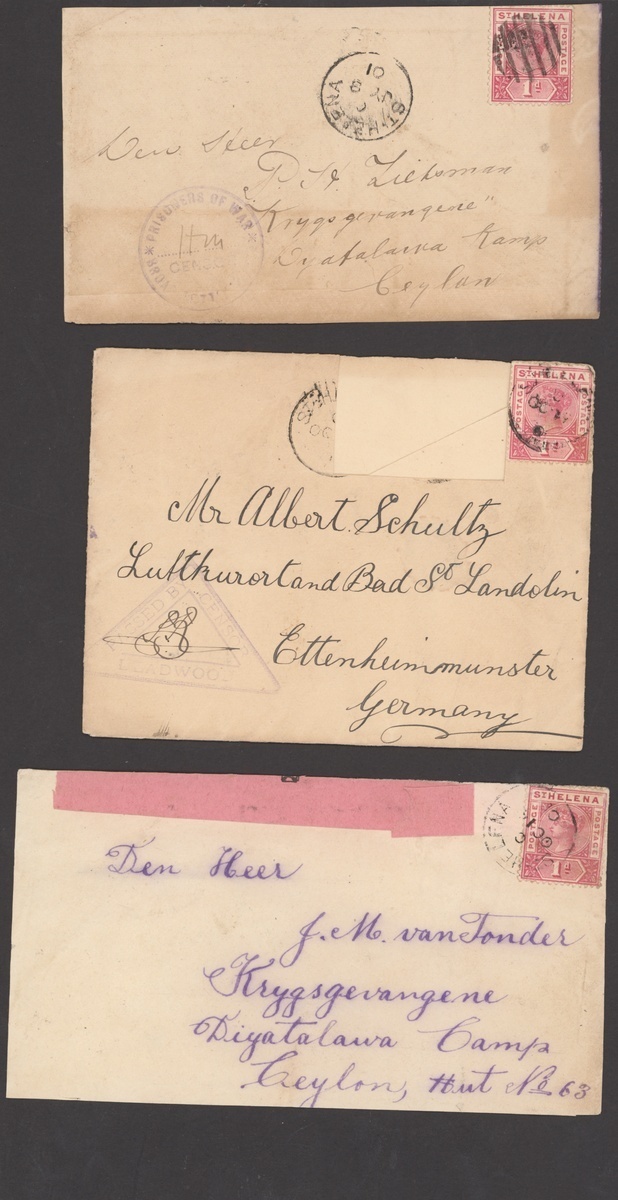 ST HELENA
POSTAGE
1d
ST. HELENA
JY 9
01
Den Heer
P. H. Zietsman
"Krygsgevangene"
Diyatalawa Kamp
Ceylon
PRISONERS OF WAR
CENSOR
ST HELENA
POSTAGE POSTAGE
1d
Mr Albert Schultz
Luftkurort and Bad St Landolin
Ettenheimmunster
Germany
PASSED BY CENSOR
DEADWOOD
ST HELENA
POSTAGE POSTAGE
1d
HELENA
Den Heer
J. M. van Tonder
Krygsgevangene
Diyatalawa Camp
Ceylon, Hut No 63